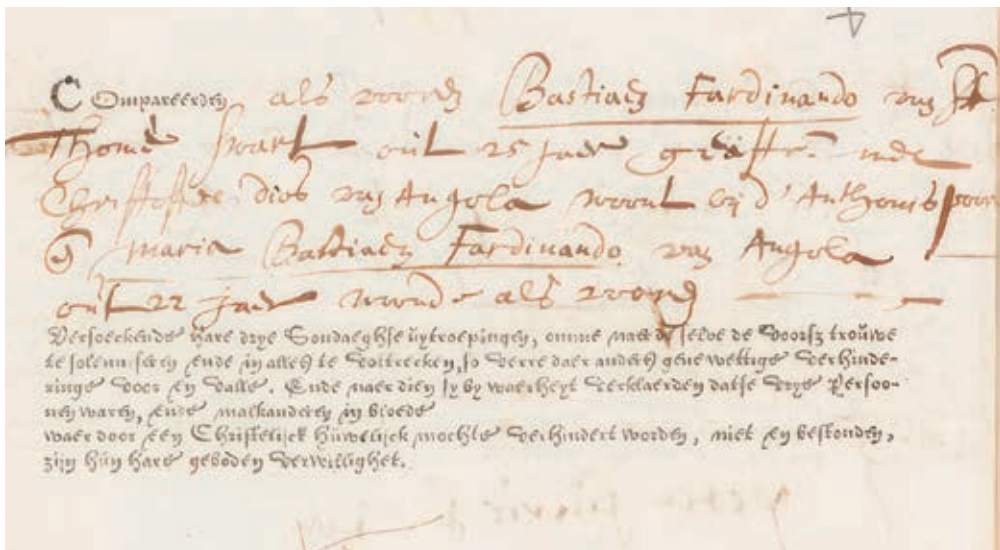 Compareerden als vooren Bastiaen Fardinando van St.
Thome swart out 25 jaer geass. met
Christoffel dios van Angola woont bij d'Anthonis poort
En Maria Bastiaen Fardinando van Angola
out 22 jaer woonde als vooren
Versoeckende hare drye Sondaeghse uytroepingen, omme naer de selve de voorsz trouwe
te solenniseren ende in alles te voltrecken, so verre daer anders gene wettige verhinde-
ringe voor en valle. Ende naer dien sy by waerheyt verklaerden datse vrye Persoo-
nen waren, ende malkanderen in bloede
waer door een Christelijck huwelijck mochte verhindert worden, niet en bestonden,
zijn hun hare geboden verwillighet.